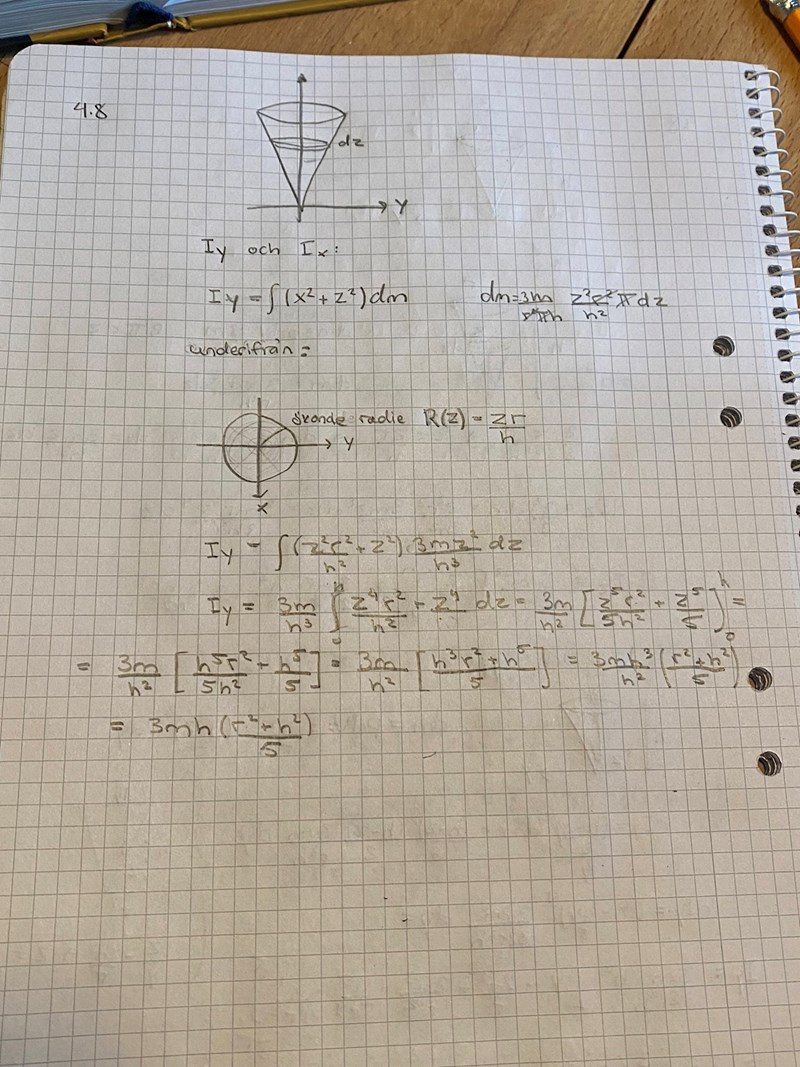 4.8
dz
Y
Iy och Ix:
Iy = ∫(x² + z²) dm dm = 3m/r²πh z²r²/h² π dz
underifrån =
ökande radie R(z) = zr/h
Y
X
Iy = ∫(z²r²/h² + z²) 3mz²/h³ dz
Iy = 3m/h³ ∫₀ʰ z⁴r²/h² + z⁴ dz = 3m/h² [z⁵r²/5h² + z⁵/5]₀ʰ =
= 3m/h² [h⁵r²/5h² + h⁵/5] = 3m/h² [h³r² + h⁵/5] = 3mh³/h² (r² + h²/5)
= 3mh (r² + h²)/5